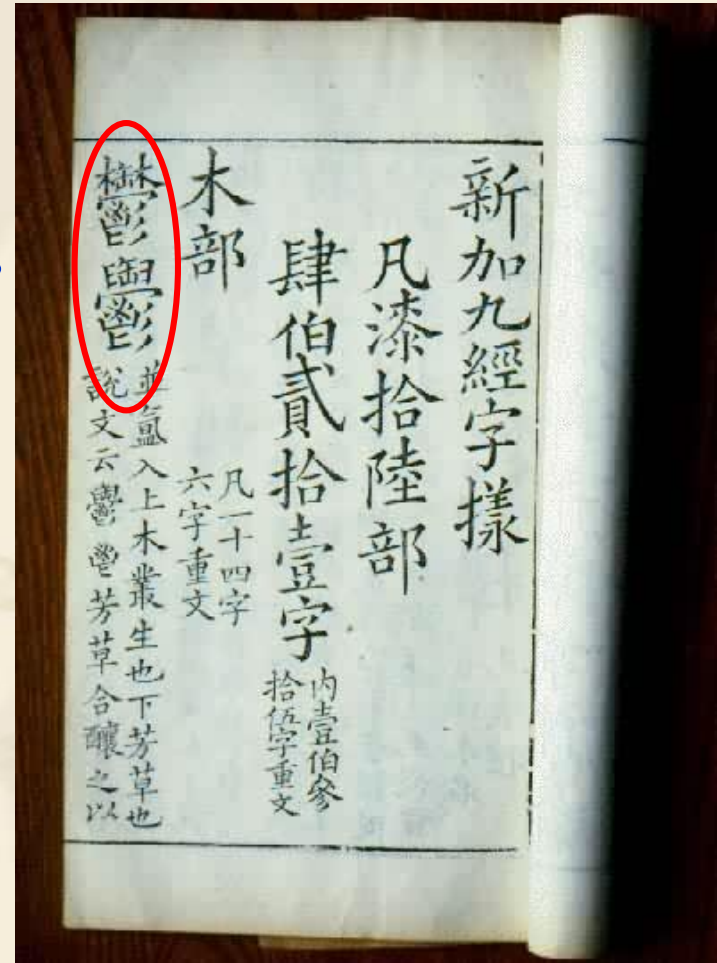 新加九經字樣
凡漆拾陸部
肆伯貳拾壹字
內壹伯參
拾伍字重文
木部
凡一十四字
六字重文
鬱𩰪
並氳入上木叢生也下芳草也
說文云𩰪鬯芳草合釀之以